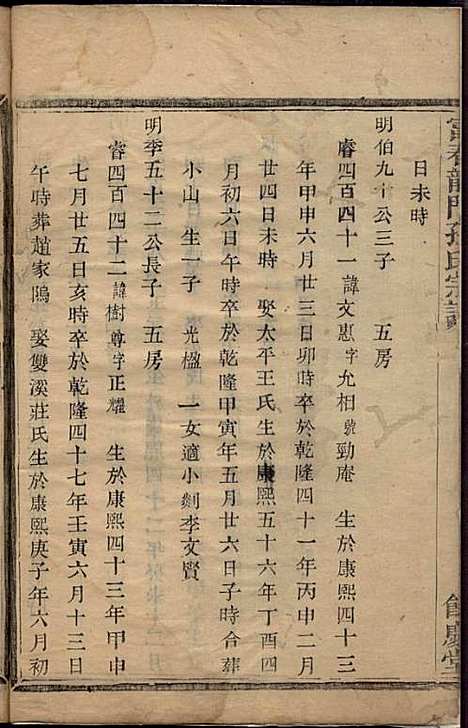 富春龍門孫氏宗譜
餘慶堂
日未時
明伯九十公三子　五房
睿四百四十一諱文惠字允相號勁庵　生於康熙四十三
年甲申六月廿三日卯時卒於乾隆四十一年丙申二月
廿四日未時　娶太平王氏生於康熙五十六年丁酉四
月初六日午時卒於乾隆甲寅年五月廿六日子時合葬
小山　生一子　光楹　一女適小剡李文賢
明季五十二公長子　五房
睿四百四十二諱樹尊字正耀　生於康熙四十三年甲申
七月廿五日亥時卒於乾隆四十七年壬寅六月十三日
午時葬趙家隖　娶雙溪莊氏生於康熙庚子年六月初